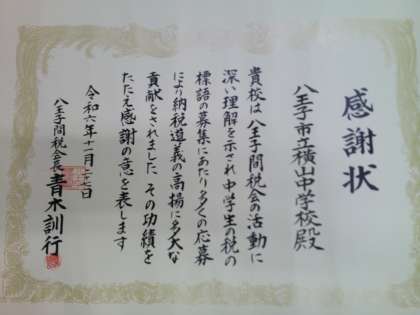 感謝状
八王子市立横山中学校殿
貴校は八王子間税会の活動に
深い理解を示され中学生の税の
標語の募集にあたり多くの応募
により納税道義の高揚に多大な
貢献をされました その功績を
たたえ感謝の意を表します
令和六年十一月二十七日
八王子間税会長 青木訓行